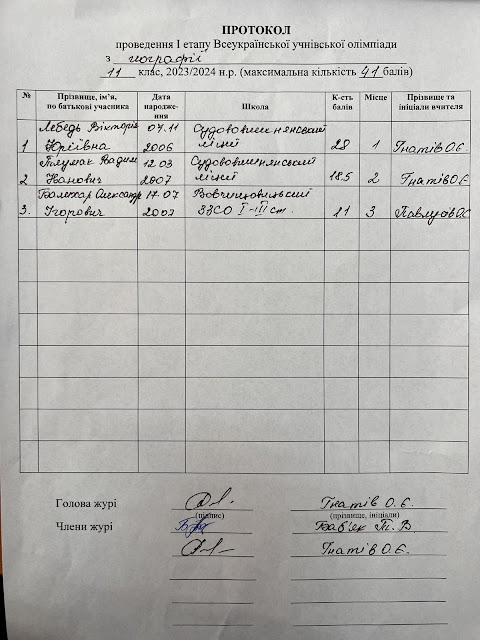 ПРОТОКОЛ
проведення І етапу Всеукраїнської учнівської олімпіади
з географії
11 клас, 2023/2024 н.р. (максимальна кількість 41 балів)
№ Прізвище, ім'я, по батькові учасника Дата народже-ння Школа К-сть балів Місце Прізвище та ініціали вчителя
Лебедь Вікторія 07.11 Судововишнянський
1 Юріївна 2006 ліцей 28 1 Гнатів О.Є.
Вадим 12.03 Судововишнянський
2 Іванович 2007 ліцей 18.5 2 Гнатів О.Є.
Олександр 17.07
3. Ігорович 2007 ЗЗСО І-ІІІ ст. 11 3
Голова журі Гнатів О.Є.
(підпис) (прізвище, ініціали)
Члени журі Баб'як Т.В
Гнатів О.Є.